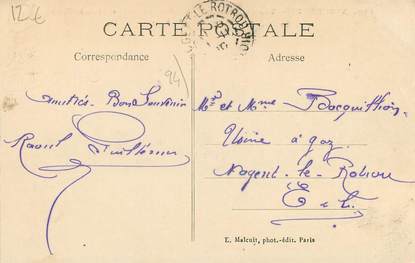 12€
CARTE POSTALE
LE ROTROU
Correspondance
Adresse
94
Amitiés - Bon Souvenir
Raoul
Mr et Mme
Usine à gaz
Nogent-le-Rotrou
E & L.
E. Malcuit, phot.-édit. Paris